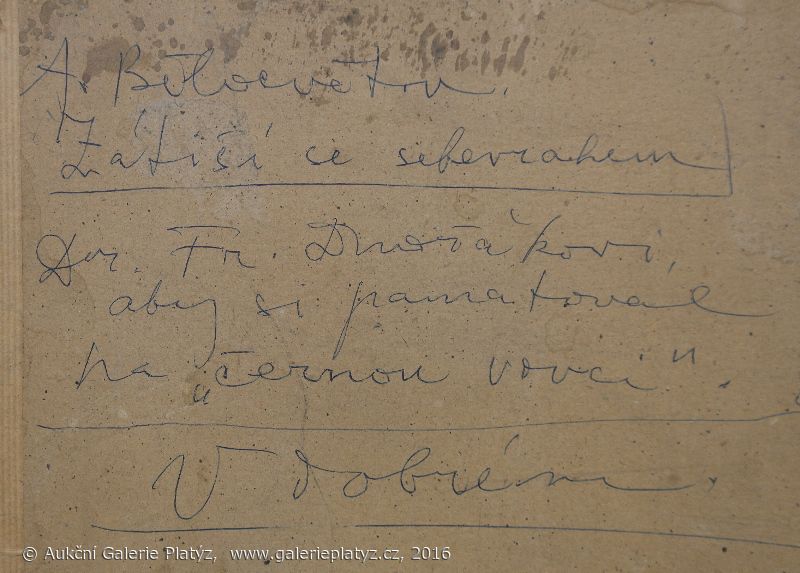 A. Bělocvětov.
Zátiší se sebevrahem
Dr. Fr. Dvořákovi,
aby si pamatoval
na „černou vovci".
V dobrém.
© Aukční Galerie Platýz, www.galerieplatyz.cz, 2016